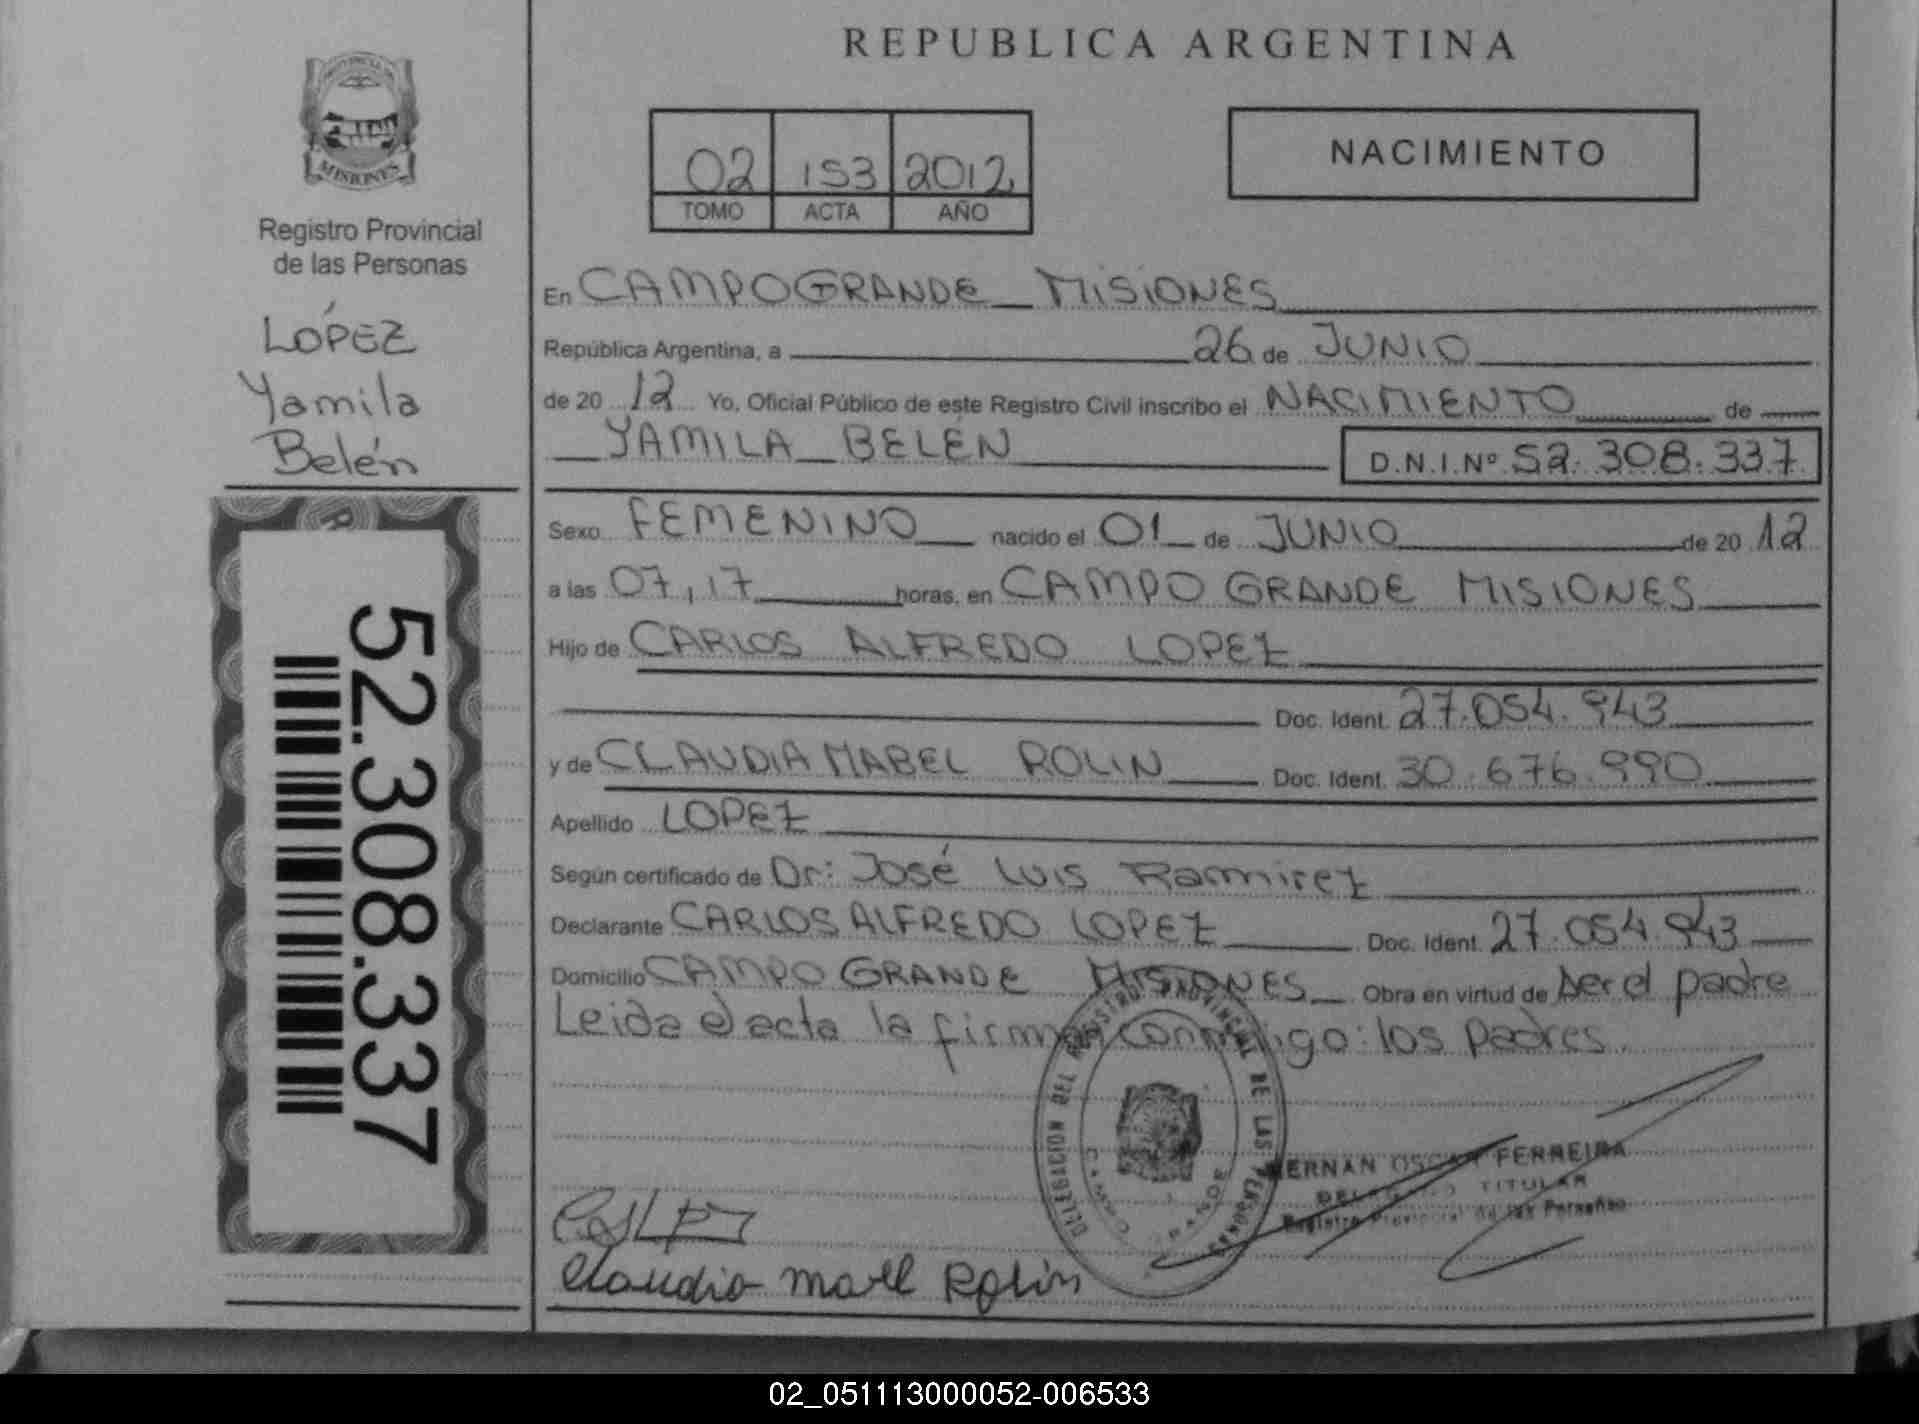 REPUBLICA ARGENTINA
PROVINCIA DE
MISIONES
Registro Provincial
de las Personas
LÓPEZ
Yamila
Belén
52.308.337
02 153 2012
TOMO ACTA AÑO
NACIMIENTO
En CAMPO GRANDE _ MISIONES
República Argentina, a 26 de JUNIO
de 20 12 Yo, Oficial Público de este Registro Civil inscribo el NACIMIENTO de
YAMILA _ BELÉN D.N.I.Nº 52.308.337
Sexo FEMENINO nacido el 01 de JUNIO de 20 12
a las 07,17 horas, en CAMPO GRANDE MISIONES
Hijo de CARLOS ALFREDO LOPEZ
Doc. Ident. 27.054.943
y de CLAUDIA MABEL ROLIN Doc. Ident. 30.676.990
Apellido LOPEZ
Según certificado de Dr: José Luis Ramirez
Declarante CARLOS ALFREDO LOPEZ Doc. Ident. 27.054.943
Domicilio CAMPO GRANDE MISIONES Obra en virtud de ser el padre
Leida el acta la firman conmigo: los padres.
DELEGACION DEL REGISTRO PROVINCIAL DE LAS PERSONAS
CAMPO GRANDE
HERNAN OSCAR FERREIRA
DELEGADO TITULAR
Registro Provincial de las Personas
Claudia Mabel Rolin
02_051113000052-006533